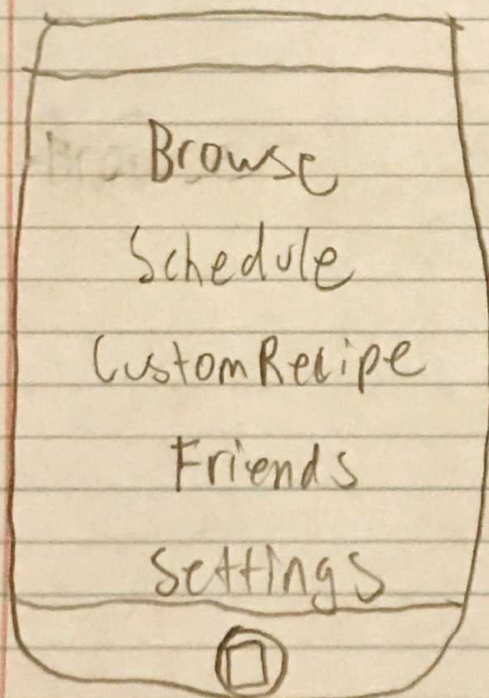 Browse
Schedule
Custom Recipe
Friends
Settings